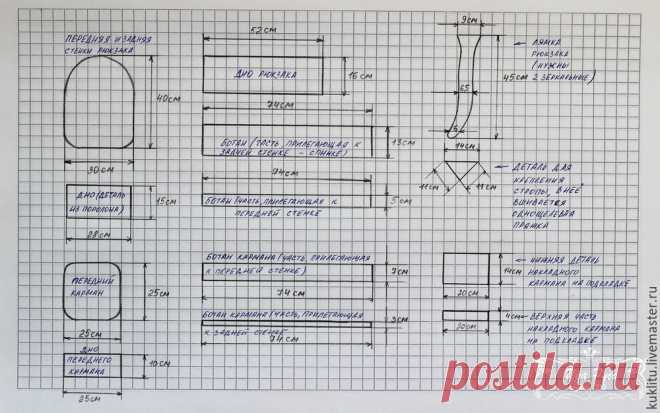 ПЕРЕДНЯЯ И ЗАДНЯЯ
СТЕНКИ РЮКЗАКА
40см
30см
ДНО (ДЕТАЛЬ
ИЗ ПОРОЛОНА)
15см
28см
ПЕРЕДНИЙ
КАРМАН
25см
25см
ДНО
ПЕРЕДНЕГО
КАРМАНА
10см
25см
52см
ДНО РЮКЗАКА
16см
74см
БОТАН (ЧАСТЬ, ПРИЛЕГАЮЩАЯ К
ЗАДНЕЙ СТЕНКЕ - СПИНКЕ)
13см
74см
БОТАН (ЧАСТЬ, ПРИЛЕГАЮЩАЯ К
ПЕРЕДНЕЙ СТЕНКЕ
5см
БОТАН КАРМАНА (ЧАСТЬ, ПРИЛЕГАЮЩАЯ
К ПЕРЕДНЕЙ СТЕНКЕ)
7см
74см
БОТАН КАРМАНА (ЧАСТЬ, ПРИЛЕГАЮЩАЯ
К ЗАДНЕЙ СТЕНКЕ
3см
74см
9см
ЛЯМКА
РЮКЗАКА
(НУЖНЫ
2 ЗЕРКАЛЬНЫЕ)
45см
6
14см
11см
11см
ДЕТАЛЬ ДЛЯ
КРЕПЛЕНИЯ
СТРОПЫ, В НЕЁ
ВШИВАЕТСЯ
ОДНОЩЕЛЕВАЯ
ПРЯЖКА
14см
20см
НИЖНЯЯ ДЕТАЛЬ
НАКЛАДНОГО
КАРМАНА НА ПОДКЛАДКЕ
4см
20см
ВЕРХНЯЯ ЧАСТЬ
НАКЛАДНОГО КАРМАНА
НА ПОДКЛАДКЕ
kuklitu.livemaster.ru
postila.ru